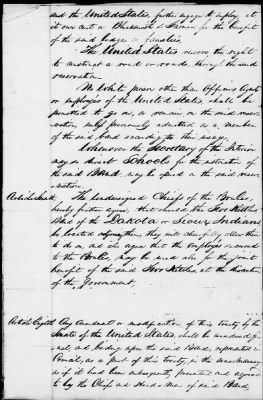 and the United States further engages to employ, at
its own cost a Blacksmith & Farmer for the benefit
of the said lodges or families.
The United States reserve the right
to construct a road or roads, through the said
reservation.
No White person other than Officers, Agents
or employees of the United States, shall be
permitted to go on, or remain on the said reser-
vation, unless previously admitted as a member
of the said band according to their usages.
Whenever the Secretary of the Interior
may so direct Schools for the instruction of
the said Band, may be opened on the said reser-
vation.
Article Seventh. The undersigned Chiefs of the Brules,
hereby further agree, that should the Two Kettles
Band of the Dakota or Sioux Indians
be located adjoining them, they will cheerfully allow them
to do so, and also agree that the employees renewed
to the Brules, may be used also for the joint
benefit of the said Two Kettles, at the discretion
of the Government.
Article Eighth Any amendment or modification of this treaty by the
Senate of the United States, shall be considered fi-
nal, and binding upon the said Band, represented in
Council, as a part of this treaty, in the same manner
as if it had been subsequently presented and agreed
to by the Chiefs and Head-Men of said Band,